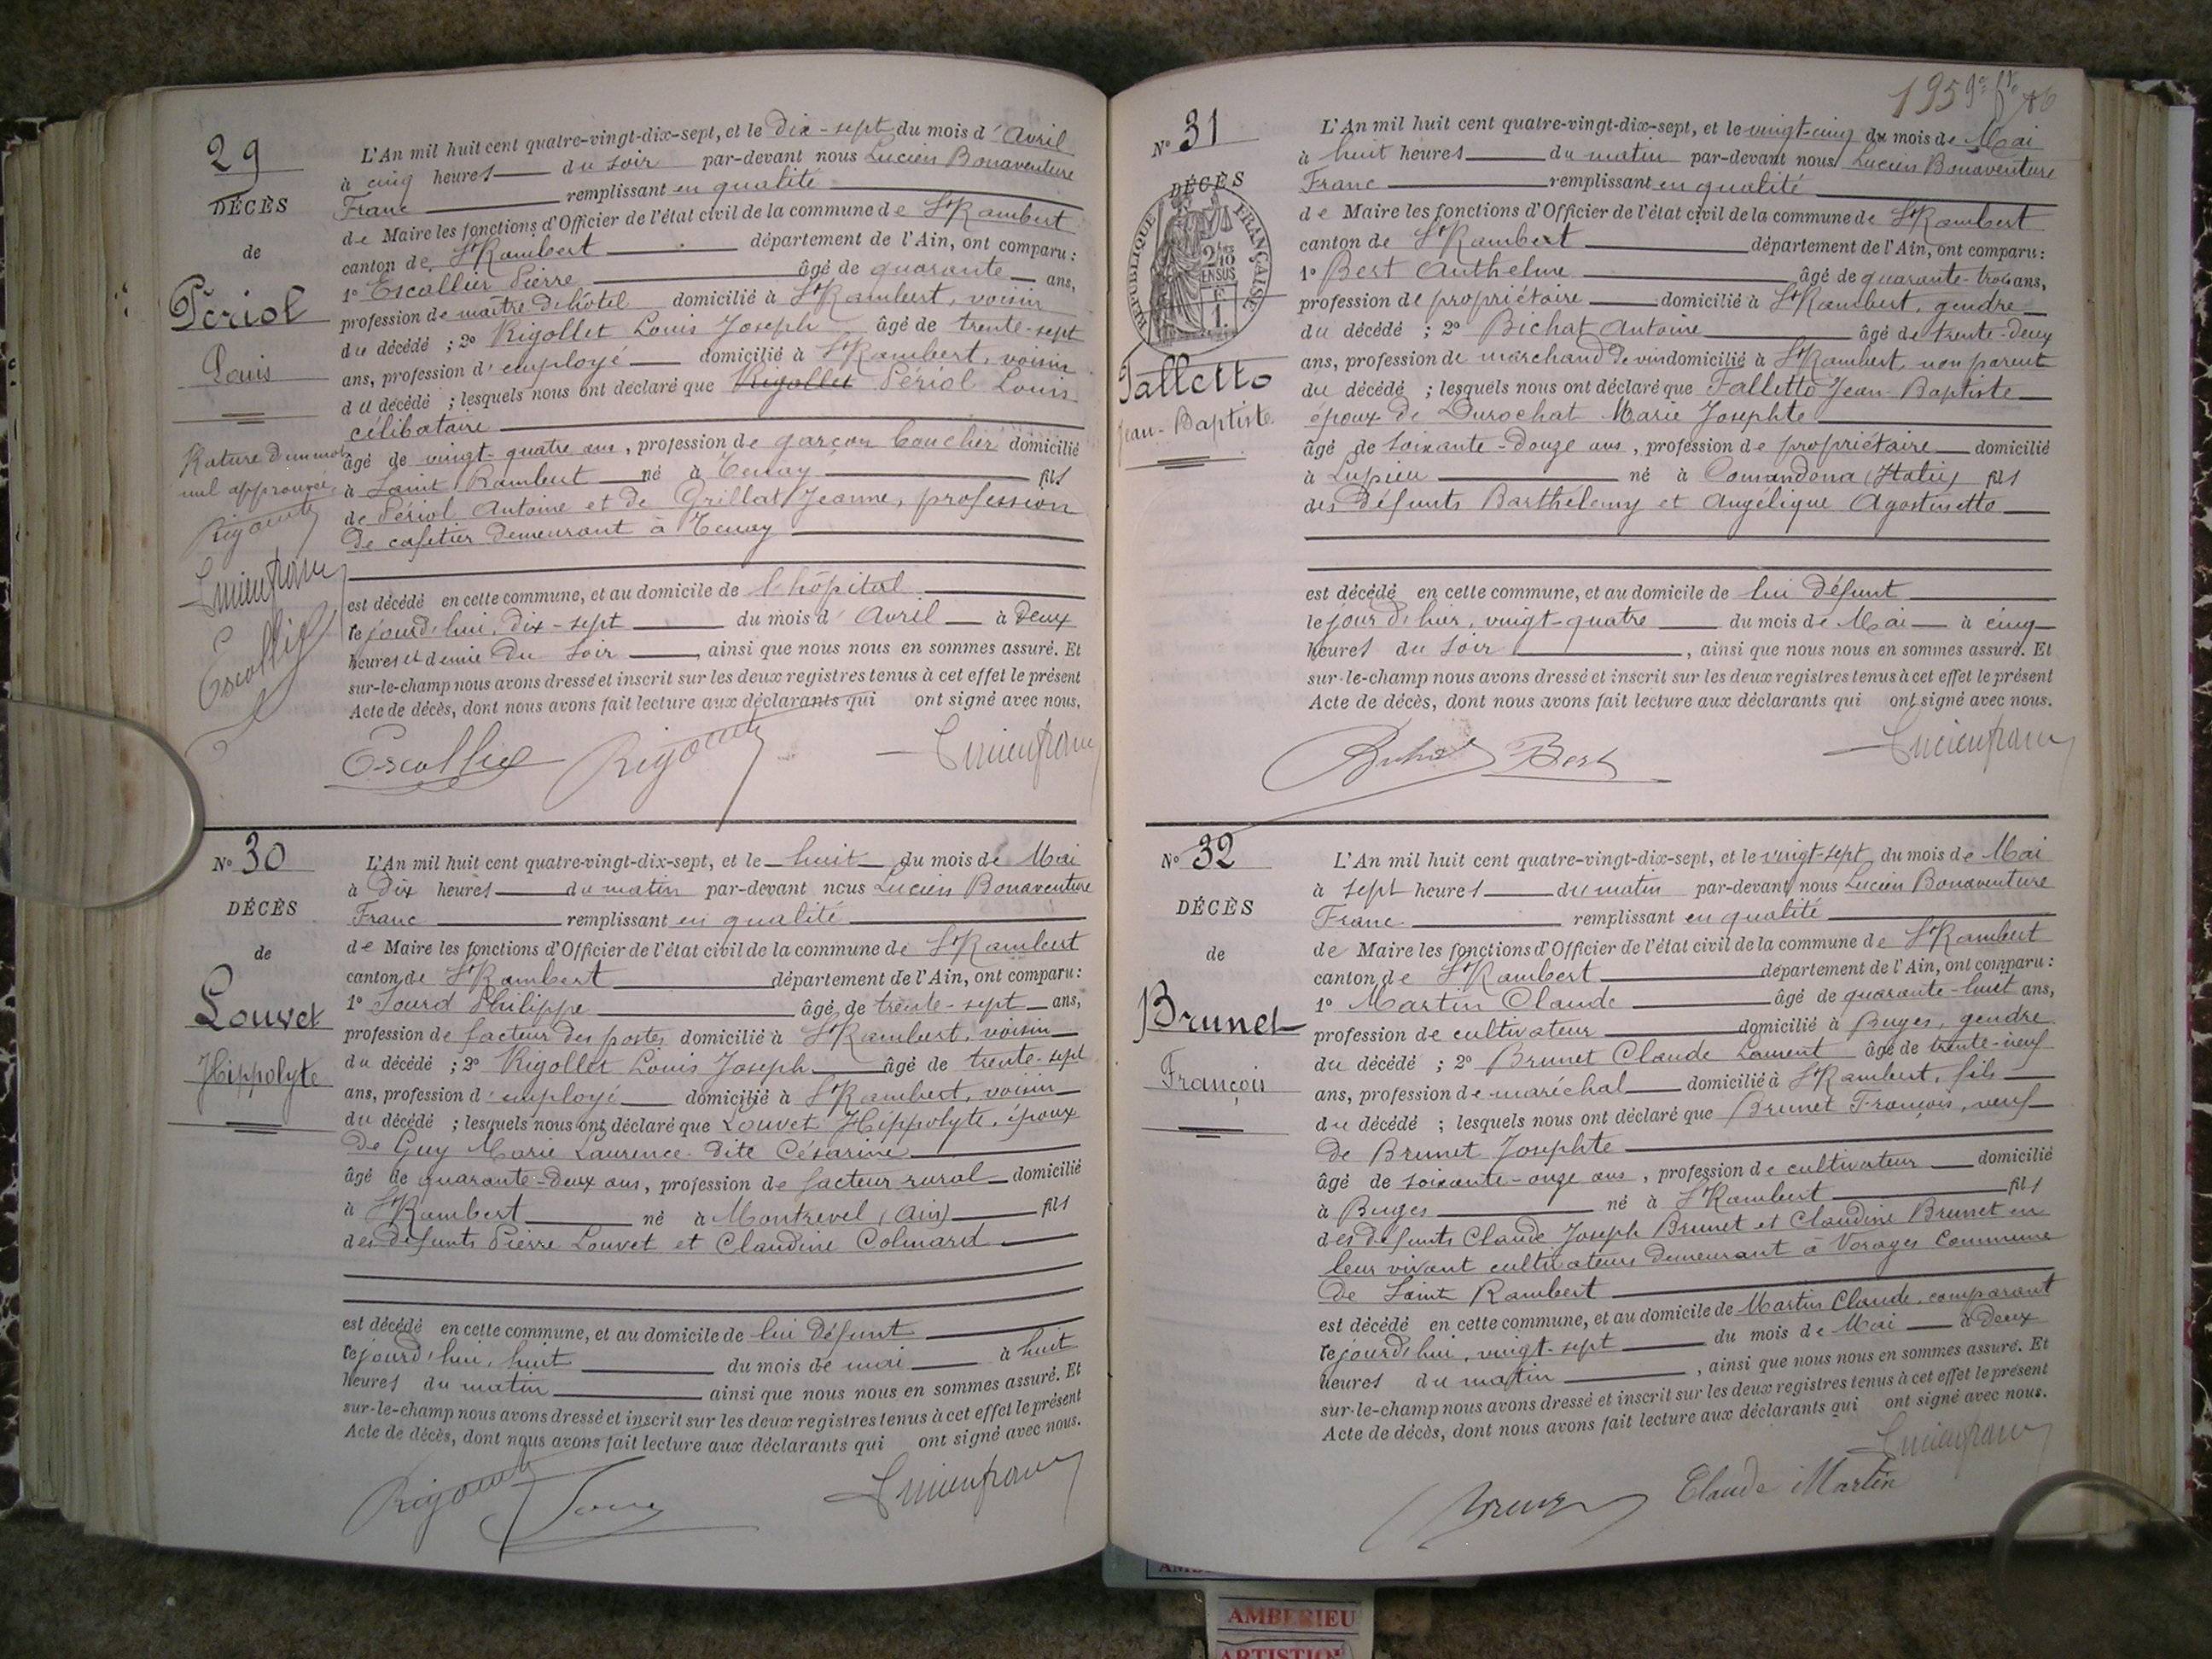 29
DÉCÈS
de
Périol
Louis
Rature d'un mot
nul approuvé
L'An mil huit cent quatre-vingt-dix-sept, et le dix-sept du mois d'Avril
à cinq heures du soir par-devant nous Lucien Bonaventure
Franc remplissant en qualité
de Maire les fonctions d'Officier de l'état civil de la commune de St Rambert
canton de St Rambert département de l'Ain, ont comparu :
1° Escallier Pierre âgé de quarante ans,
profession de maître d'hôtel domicilié à St Rambert, voisin
du décédé ; 2° Rigollet Louis Joseph âgé de trente-sept
ans, profession d'employé domicilié à St Rambert, voisin
du décédé ; lesquels nous ont déclaré que Rigollet Périol Louis
célibataire
âgé de vingt-quatre ans, profession de garçon boucher domicilié
à Saint Rambert né à Tenay fils
de Périol Antoine et de Grillat Jeanne, profession
de cafetier demeurant à Tenay
est décédé en cette commune, et au domicile de l'hôpital
le jourd'hui, dix-sept du mois d'Avril à deux
heures et demie du soir, ainsi que nous nous en sommes assuré. Et
sur-le-champ nous avons dressé et inscrit sur les deux registres tenus à cet effet le présent
Acte de décès, dont nous avons fait lecture aux déclarants qui ont signé avec nous.
N° 30
DÉCÈS
de
Louvet
Hippolyte
L'An mil huit cent quatre-vingt-dix-sept, et le huit du mois de Mai
à dix heures du matin par-devant nous Lucien Bonaventure
Franc remplissant en qualité
de Maire les fonctions d'Officier de l'état civil de la commune de St Rambert
canton de St Rambert département de l'Ain, ont comparu :
1° Sourd Philippe âgé de trente-sept ans,
profession de facteur des postes domicilié à St Rambert, voisin
du décédé ; 2° Rigollet Louis Joseph âgé de trente-sept
ans, profession d'employé domicilié à St Rambert, voisin
du décédé ; lesquels nous ont déclaré que Louvet Hippolyte, époux
de Guy Marie Laurence dite Césarine
âgé de quarante-deux ans, profession de facteur rural domicilié
à St Rambert né à Montrevel (Ain) fils
des défunts Pierre Louvet et Claudine Colmard
est décédé en cette commune, et au domicile de lui défunt
le jourd'hui, huit du mois de mai à huit
heures du matin ainsi que nous nous en sommes assuré. Et
sur-le-champ nous avons dressé et inscrit sur les deux registres tenus à cet effet le présent
Acte de décès, dont nous avons fait lecture aux déclarants qui ont signé avec nous.
195
N° 31
DÉCÈS
RÉPUBLIQUE FRANÇAISE
2/10
EN SUS
Falletto
Jean-Baptiste
L'An mil huit cent quatre-vingt-dix-sept, et le vingt-cinq du mois de Mai
à huit heures du matin par-devant nous Lucien Bonaventure
Franc remplissant en qualité
de Maire les fonctions d'Officier de l'état civil de la commune de St Rambert
canton de St Rambert département de l'Ain, ont comparu :
1° Bert Anthelme âgé de quarante-trois ans,
profession de propriétaire domicilié à St Rambert, gendre
du décédé ; 2° Bichat Antoine âgé de trente-deux
ans, profession de marchand de vin domicilié à St Rambert, non parent
du décédé ; lesquels nous ont déclaré que Falletto Jean-Baptiste
époux de Durochat Marie Josephte
âgé de soixante-douze ans, profession de propriétaire domicilié
à Lupieu né à Comandona (Italie) fils
des défunts Barthélemy et Angélique Agostinetto
est décédé en cette commune, et au domicile de lui défunt
le jour d'hier, vingt-quatre du mois de Mai à cinq
heures du soir, ainsi que nous nous en sommes assuré. Et
sur-le-champ nous avons dressé et inscrit sur les deux registres tenus à cet effet le présent
Acte de décès, dont nous avons fait lecture aux déclarants qui ont signé avec nous.
Bert
N° 32
DÉCÈS
de
Brunet
François
L'An mil huit cent quatre-vingt-dix-sept, et le vingt-sept du mois de Mai
à sept heures du matin par-devant nous Lucien Bonaventure
Franc remplissant en qualité
de Maire les fonctions d'Officier de l'état civil de la commune de St Rambert
canton de St Rambert département de l'Ain, ont comparu :
1° Martin Claude âgé de quarante-huit ans,
profession de cultivateur domicilié à Buges, gendre
du décédé ; 2° Brunet Claude Laurent âgé de trente-neuf
ans, profession de maréchal domicilié à St Rambert, fils
du décédé ; lesquels nous ont déclaré que Brunet François, veuf
de Brunet Josephte
âgé de soixante-onze ans, profession de cultivateur domicilié
à Buges né à St Rambert fils
des défunts Claude Joseph Brunet et Claudine Brunet en
leur vivant cultivateurs demeurant à Vorages Commune
de Saint Rambert
est décédé en cette commune, et au domicile de Martin Claude, comparant
le jourd'hui, vingt-sept du mois de Mai à deux
heures du matin, ainsi que nous nous en sommes assuré. Et
sur-le-champ nous avons dressé et inscrit sur les deux registres tenus à cet effet le présent
Acte de décès, dont nous avons fait lecture aux déclarants qui ont signé avec nous.
Claude Martin
AMBERIEU